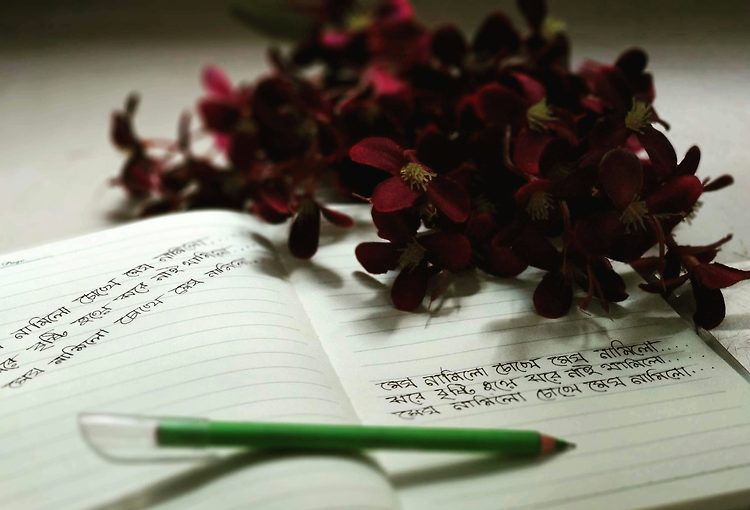 নামিলো চোখে মেঘ নামিলো...
রে বৃষ্টি হয়ে ঝরে নাই থামিলো...
মেঘ নামিলো চোখে মেঘ নামিলো...
মেঘ নামিলো চোখে মেঘ নামিলো....
ঝরে বৃষ্টি হয়ে ঝরে নাই থামিলো....
মেঘ নামিলো চোখে মেঘ নামিলো....